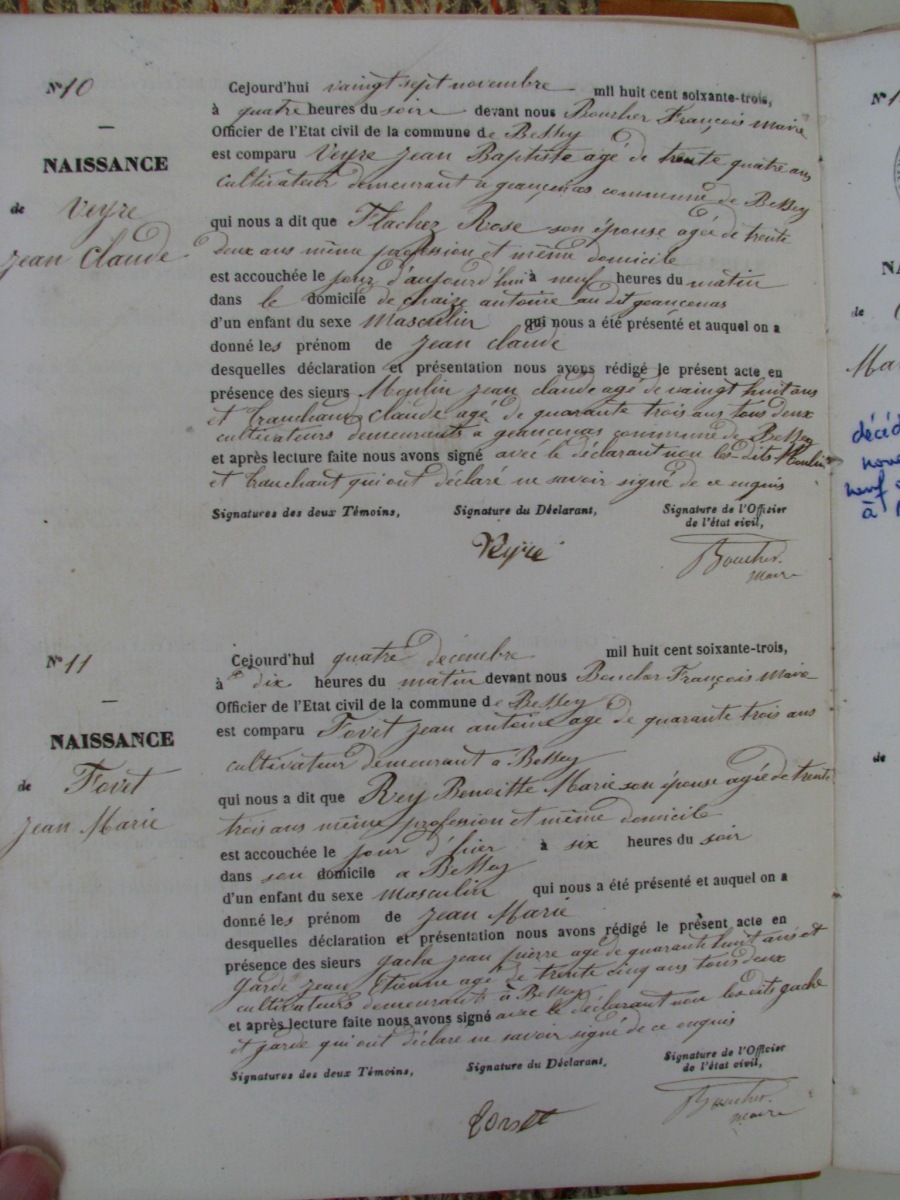 N° 10
NAISSANCE
de Veyre
jean Claude
Cejourd'hui vaingt sept novembre mil huit cent soixante-trois,
à quatre heures du soire devant nous Boucher François maire
Officier de l'Etat civil de la commune de Bessey
est comparu Veyre jean Baptiste agé de trente quatre ans
cultivateur demeurant a geancenas commune de Bessey
qui nous a dit que Flachez Rose son épouse agée de trente
deux ans même profession et même domicile
est accouchée le jour d'aujourd'hui à neuf heures du matin
dans le domicile de chaize antoine au dit geancenas
d'un enfant du sexe Masculin qui nous a été présenté et auquel on a
donné les prénom de jean claude
desquelles déclaration et présentation nous avons rédigé le présent acte en
présence des sieurs Moulin jean claude agé de vaingt huit ans
et tranchant Claude agé de quarante trois ans tous deux
cultivateurs demeurants à geancenas commune de Bessey
et après lecture faite nous avons signé avec le déclarant non les dits Moulin
et tranchant qui ont déclaré ne savoir signé de ce enquis
Signatures des deux Témoins, Signature du Déclarant, Signature de l'Officier
de l'état civil,
Veyre Boucher.
maire
N° 11
NAISSANCE
de Fovet
jean Marie
Cejourd'hui quatre décembre mil huit cent soixante-trois,
à dix heures du matin devant nous Boucher François Maire
Officier de l'Etat civil de la commune de Bessey
est comparu Fovet jean antoine agé de quarante trois ans
cultivateur demeurant à Bessey
qui nous a dit que Rey Benoitte Marie son épouse agée de trente
trois ans même profession et même domicile
est accouchée le jour d'hier à six heures du soir
dans son domicile a Bessey
d'un enfant du sexe masculin qui nous a été présenté et auquel on a
donné les prénom de jean Marie
desquelles déclaration et présentation nous avons rédigé le présent acte en
présence des sieurs gache jean pierre agé de quarante huit ans et
garde jean Etienne agé de trente cinq ans tous deux
cultivateurs demeurants à Bessey
et après lecture faite nous avons signé avec le déclarant non les dits gache
et garde qui ont déclaré ne savoir signé de ce enquis
Signatures des deux Témoins, Signature du Déclarant, Signature de l'Officier
de l'état civil,
Boucher.
maire
N° 1
NA
de
Mar
décéd
nove
neuf
à
de